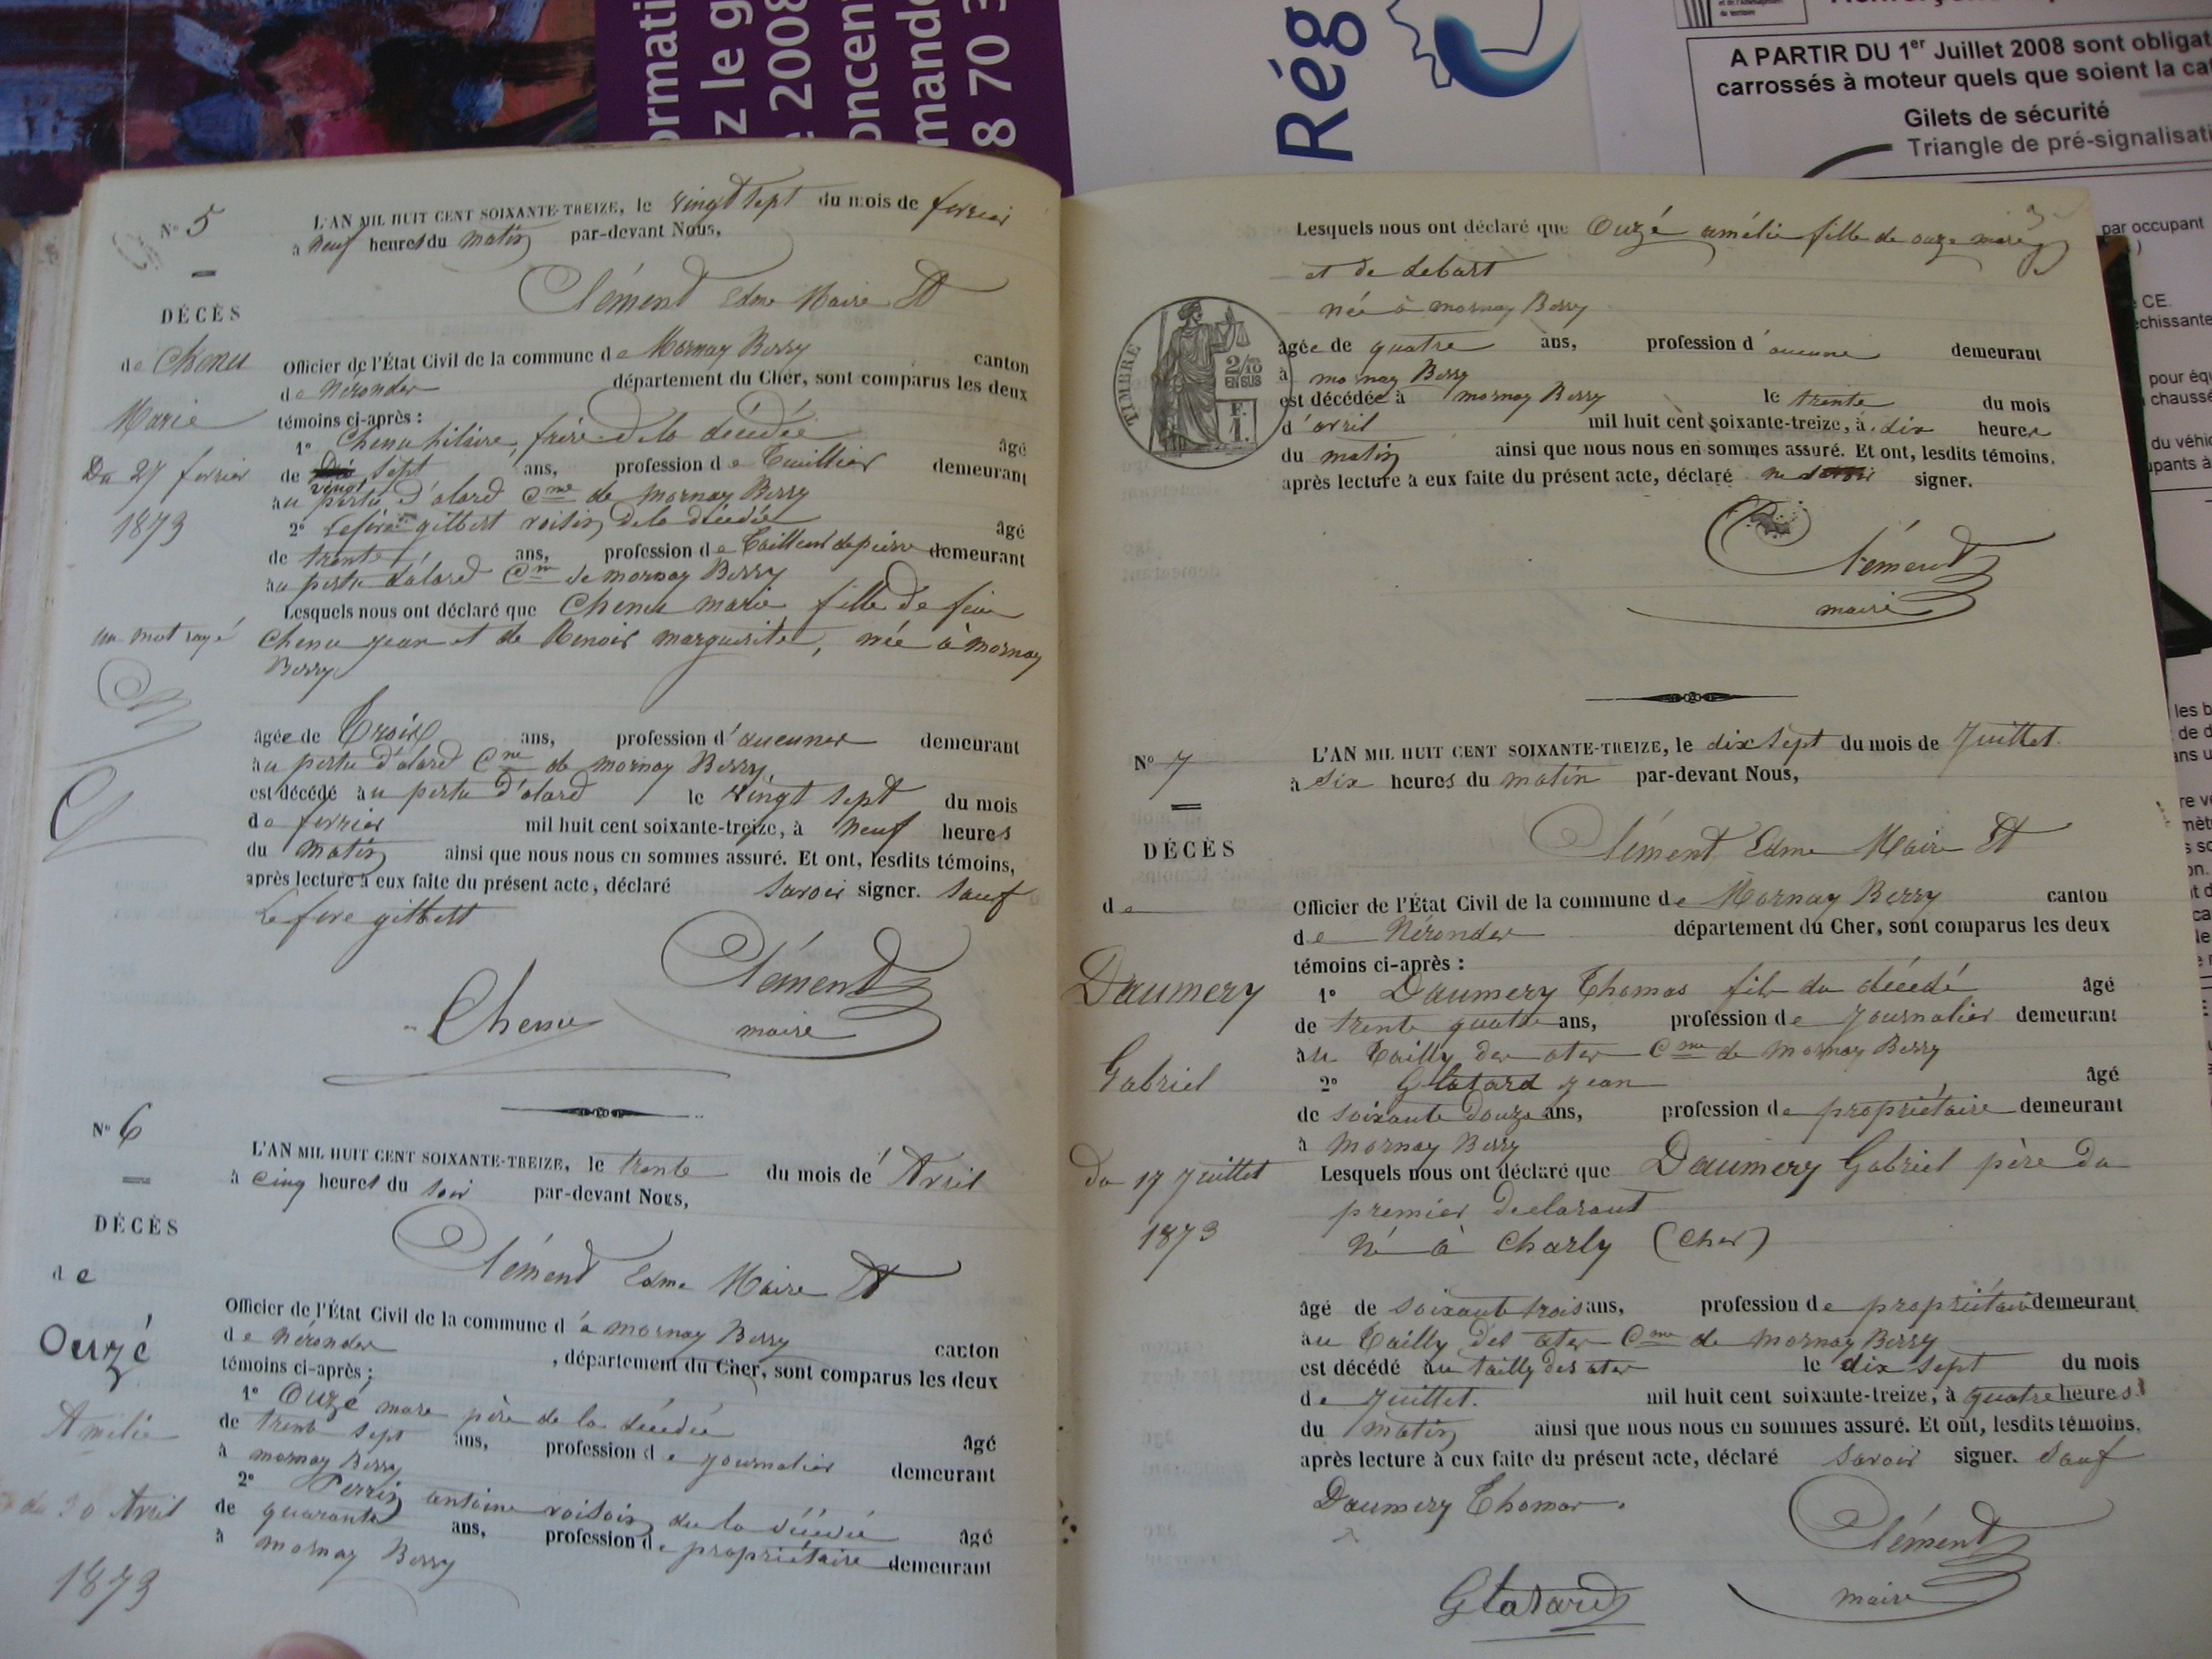 ormati
z le g
2008
oncent
mande
8 70 3
Rég
A PARTIR DU 1er Juillet 2008 sont obligat
carrossés à moteur quels que soient la cat
Gilets de sécurité
Triangle de pré-signalisati
par occupant
CE.
échissante
pour équ
chaussé
du véhic
upants à
N° 5
DÉCÈS
de Chenu
Marie
Du 27 ferrier
1873
un mot rayé
L'AN MIL HUIT CENT SOIXANTE-TREIZE, le vingt sept du mois de ferrier
à neuf heures du matin par-devant Nous,
Clément Edme Maire Et
Officier de l'État Civil de la commune de Mornay Berry canton
de Néronder département du Cher, sont comparus les deux
témoins ci-après :
1° Chenu hilaire, frère de la décédée âgé
de vingt sept ans, profession de Tuillier demeurant
au pertu d'alard Cne de Mornay Berry
2° Lefore gilbert voisin de la décédée âgé
de trente ans, profession de Tailleur de pierre demeurant
au pertu d'alard Cne de mornay Berry
Lesquels nous ont déclaré que Chenu marie fille de feu
Chenu jean et de Renoir marguerite, née à mornay
Berry
âgée de Trois ans, profession d'aucuner demeurant
au pertu d'alard Cne de mornay Berry,
est décédé au pertu d'alard le vingt sept du mois
de ferrier mil huit cent soixante-treize, à neuf heures
du matin ainsi que nous nous en sommes assuré. Et ont, lesdits témoins,
après lecture à eux faite du présent acte, déclaré savoir signer. sauf
Lefore gilbert
Chenu Clément
maire
N° 6
DÉCÈS
de
Ouzé
Amélie
du 30 Avril
1873
L'AN MIL HUIT CENT SOIXANTE-TREIZE, le trente du mois de Avril
à cinq heures du soir par-devant Nous,
Clément Edme Maire Et
Officier de l'État Civil de la commune d'à mornay Berry canton
de Néronder , département du Cher, sont comparus les deux
témoins ci-après :
1° Ouzé marc père de la décédée âgé
de trente sept ans, profession de journalier demeurant
à mornay Berry
2° Perrin antoine voisin de la décédée âgé
de quarante ans, profession de propriétaire demeurant
à mornay Berry
Lesquels nous ont déclaré que Ouzé amélie fille de ouze marc
et de debart
née à mornay Berry
TIMBRE
2/10
EN SUS
F.
1.
agée de quatre ans, profession d'aucune demeurant
à mornay Berry
est décédée à mornay Berry le trente du mois
d'avril mil huit cent soixante-treize, à dix heures
du matin ainsi que nous nous en sommes assuré. Et ont, lesdits témoins,
après lecture à eux faite du présent acte, déclaré ne savoir signer.
Clément
maire
N° 7
DÉCÈS
de
Daumery
Gabriel
Du 17 Juillet
1873
L'AN MIL HUIT CENT SOIXANTE-TREIZE, le dix sept du mois de Juillet
à six heures du matin par-devant Nous,
Clément Edme Maire Et
Officier de l'État Civil de la commune de Mornay Berry canton
de Néronder département du Cher, sont comparus les deux
témoins ci-après :
1° Daumery Thomas fils du décédé âgé
de trente quatre ans, profession de journalier demeurant
au Tailly des ater Cne de Mornay Berry
2° Glatard jean âgé
de soixante douze ans, profession de propriétaire demeurant
à Mornay Berry
Lesquels nous ont déclaré que Daumery Gabriel père du
premier declarant
Né à Charly (Cher)
âgé de soixante trois ans, profession de propriétaire demeurant
au Tailly des ater Cne de Mornay Berry
est décédé au tailly des ater le dix sept du mois
de Juillet. mil huit cent soixante-treize, à quatre heures
du matin ainsi que nous nous en sommes assuré. Et ont, lesdits témoins,
après lecture à eux faite du présent acte, déclaré savoir signer. sauf
Daumery Thomas.
Clément
Glatard maire